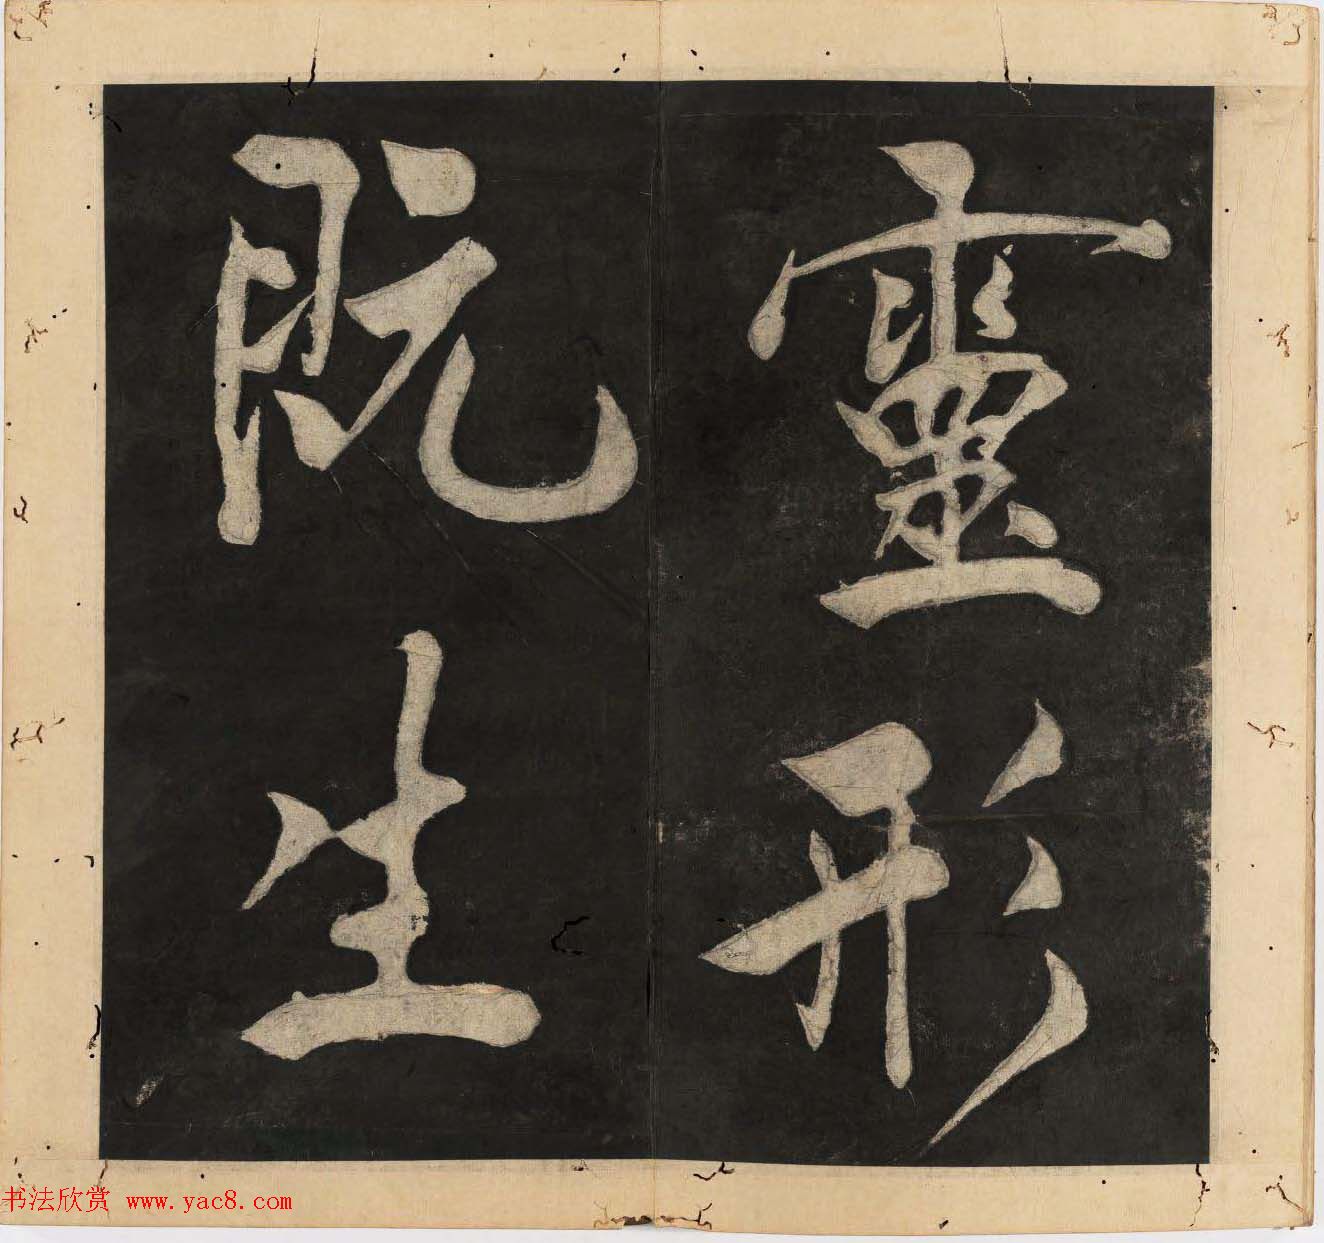 靈形
既生
书法欣赏 www.yac8.com